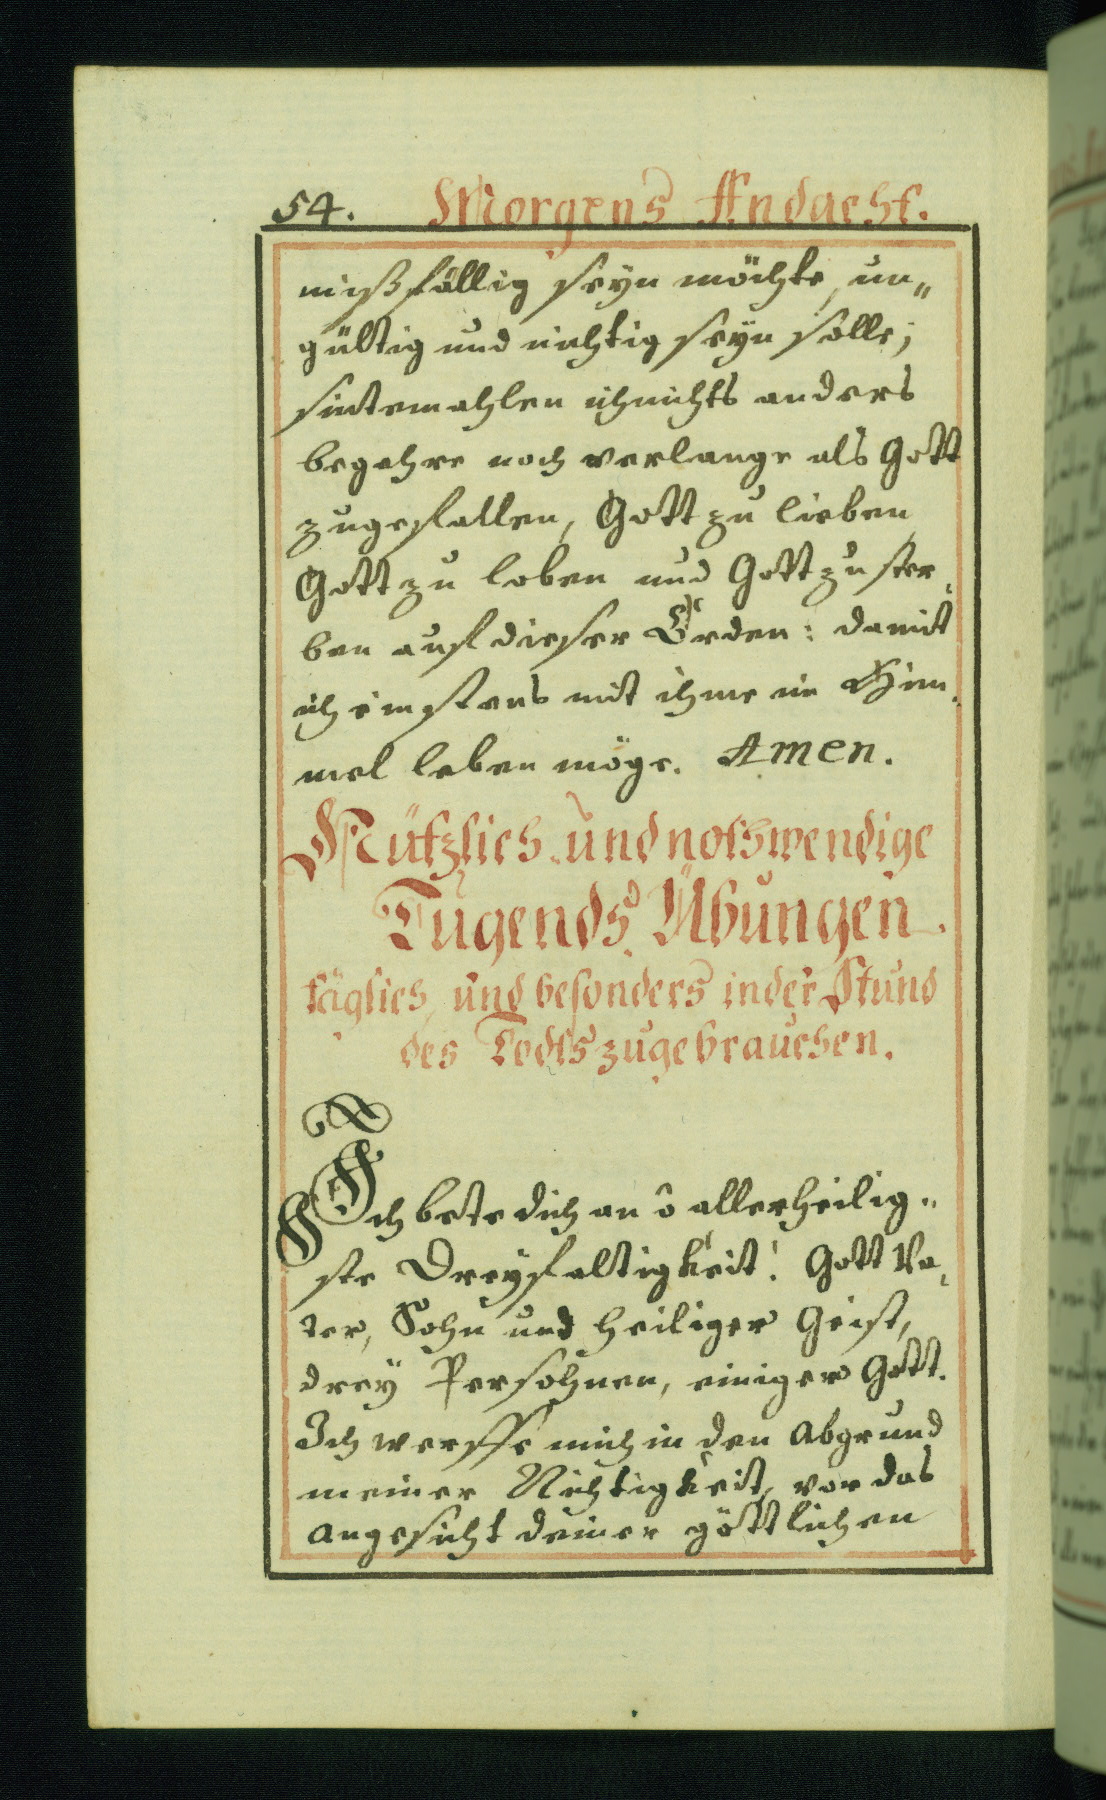 54. Morgens Andacht.
mißfällig seyn möchte, un„
gültig und nichtig seyn solle;
sintemahlen ich nichts anders
begehre noch verlange als Gott
zugefallen, Gott zu lieben
Gott zu loben und Gott zu ster„
ben auf dieser Erden: damit
ich einstens mit ihme im Him„
mel leben möge. Amen.
Nützlich und nothwendige
Tugends Übungen.
täglich, und besonders in der Stund
des Todts zugebrauchen.
Ich bete dich an ô allerheilig„
ste Dreyfaltigkeit! Gott Va„
ter, Sohn und heiliger Geist,
drey Persohnen, einiger Gott.
Ich werffe mich in den Abgrund
meiner Nichtigkeit, vor das
angesicht deiner göttlichen